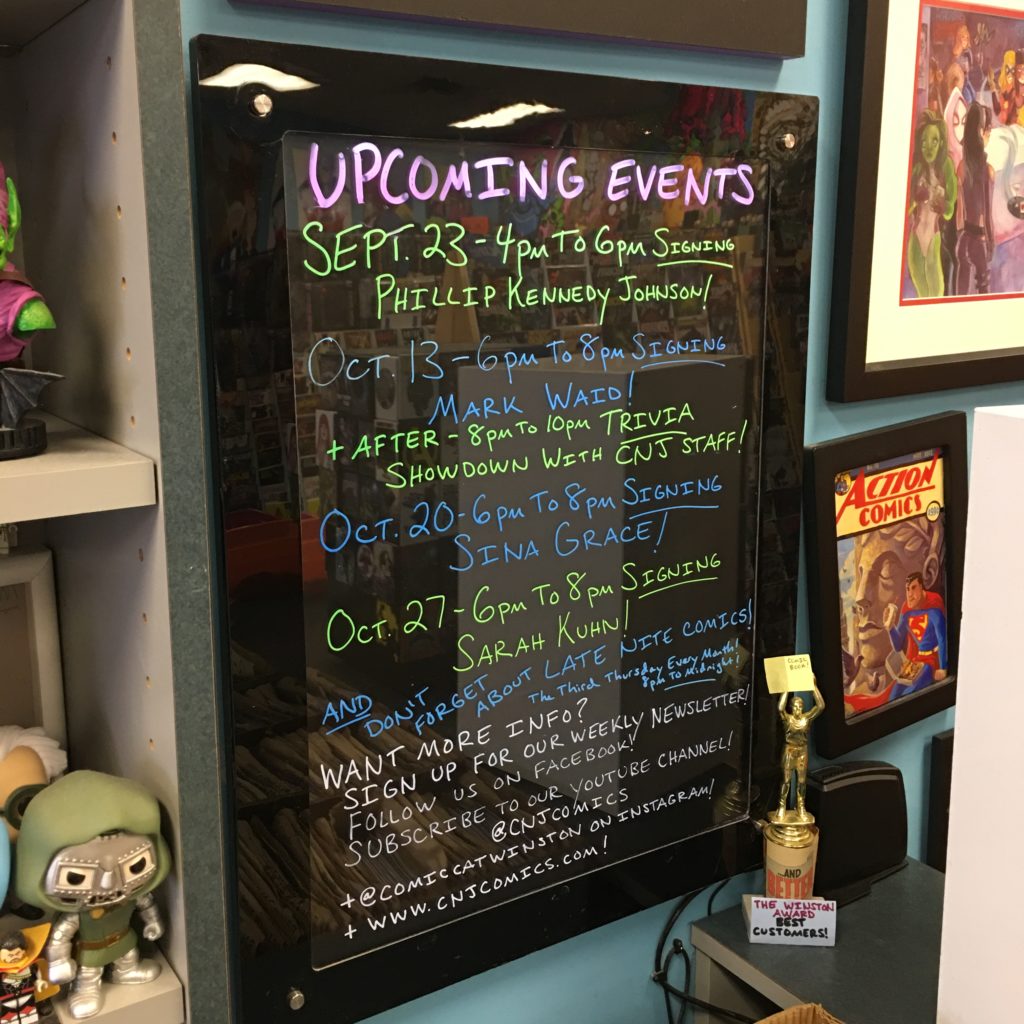 UPCOMING EVENTS
SEPT. 23 - 4pm To 6pm SIGNING
PHILLIP KENNEDY JOHNSON!
OCT. 13 - 6pm To 8pm SIGNING
MARK WAID!
+ AFTER - 8pm To 10pm TRIVIA
SHOWDOWN WITH CNJ STAFF!
OCT. 20 - 6pm To 8pm SIGNING
SINA GRACE!
OCT. 27 - 6pm To 8pm SIGNING
SARAH KUHN!
AND DON'T
FORGET
ABOUT LATE NITE COMICS!
The Third Thursday Every Month!
8pm To Midnight!
WANT MORE INFO?
SIGN UP FOR OUR WEEKLY NEWSLETTER!
FOLLOW US ON FACEBOOK!
SUBSCRIBE TO OUR YOUTUBE CHANNEL!
@CNJCOMICS
+ @COMICCATWINSTON ON INSTAGRAM!
+ WWW.CNJCOMICS.COM!
ACTION
COMICS
COMIC
BOOK!
...AND
BETTER
THE WINSTON
AWARD
BEST
CUSTOMERS!